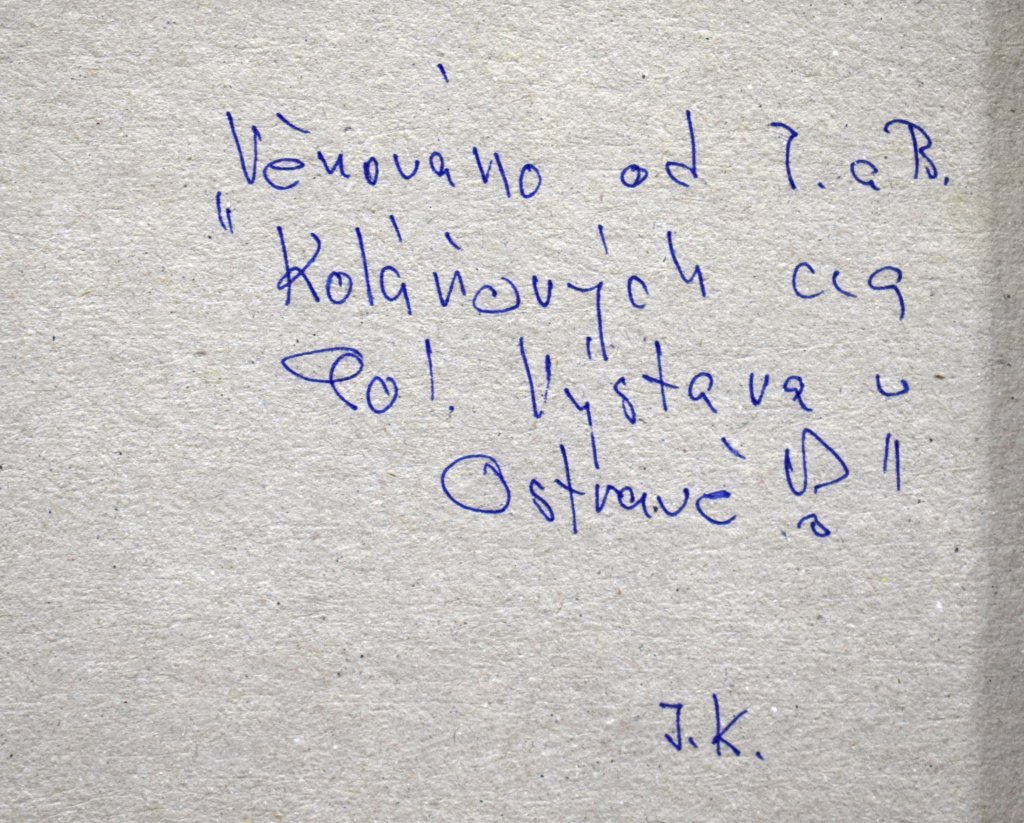 „Věnováno od J. a B.
Kolářových cca
Výstava v
Ostravě "
J.K.